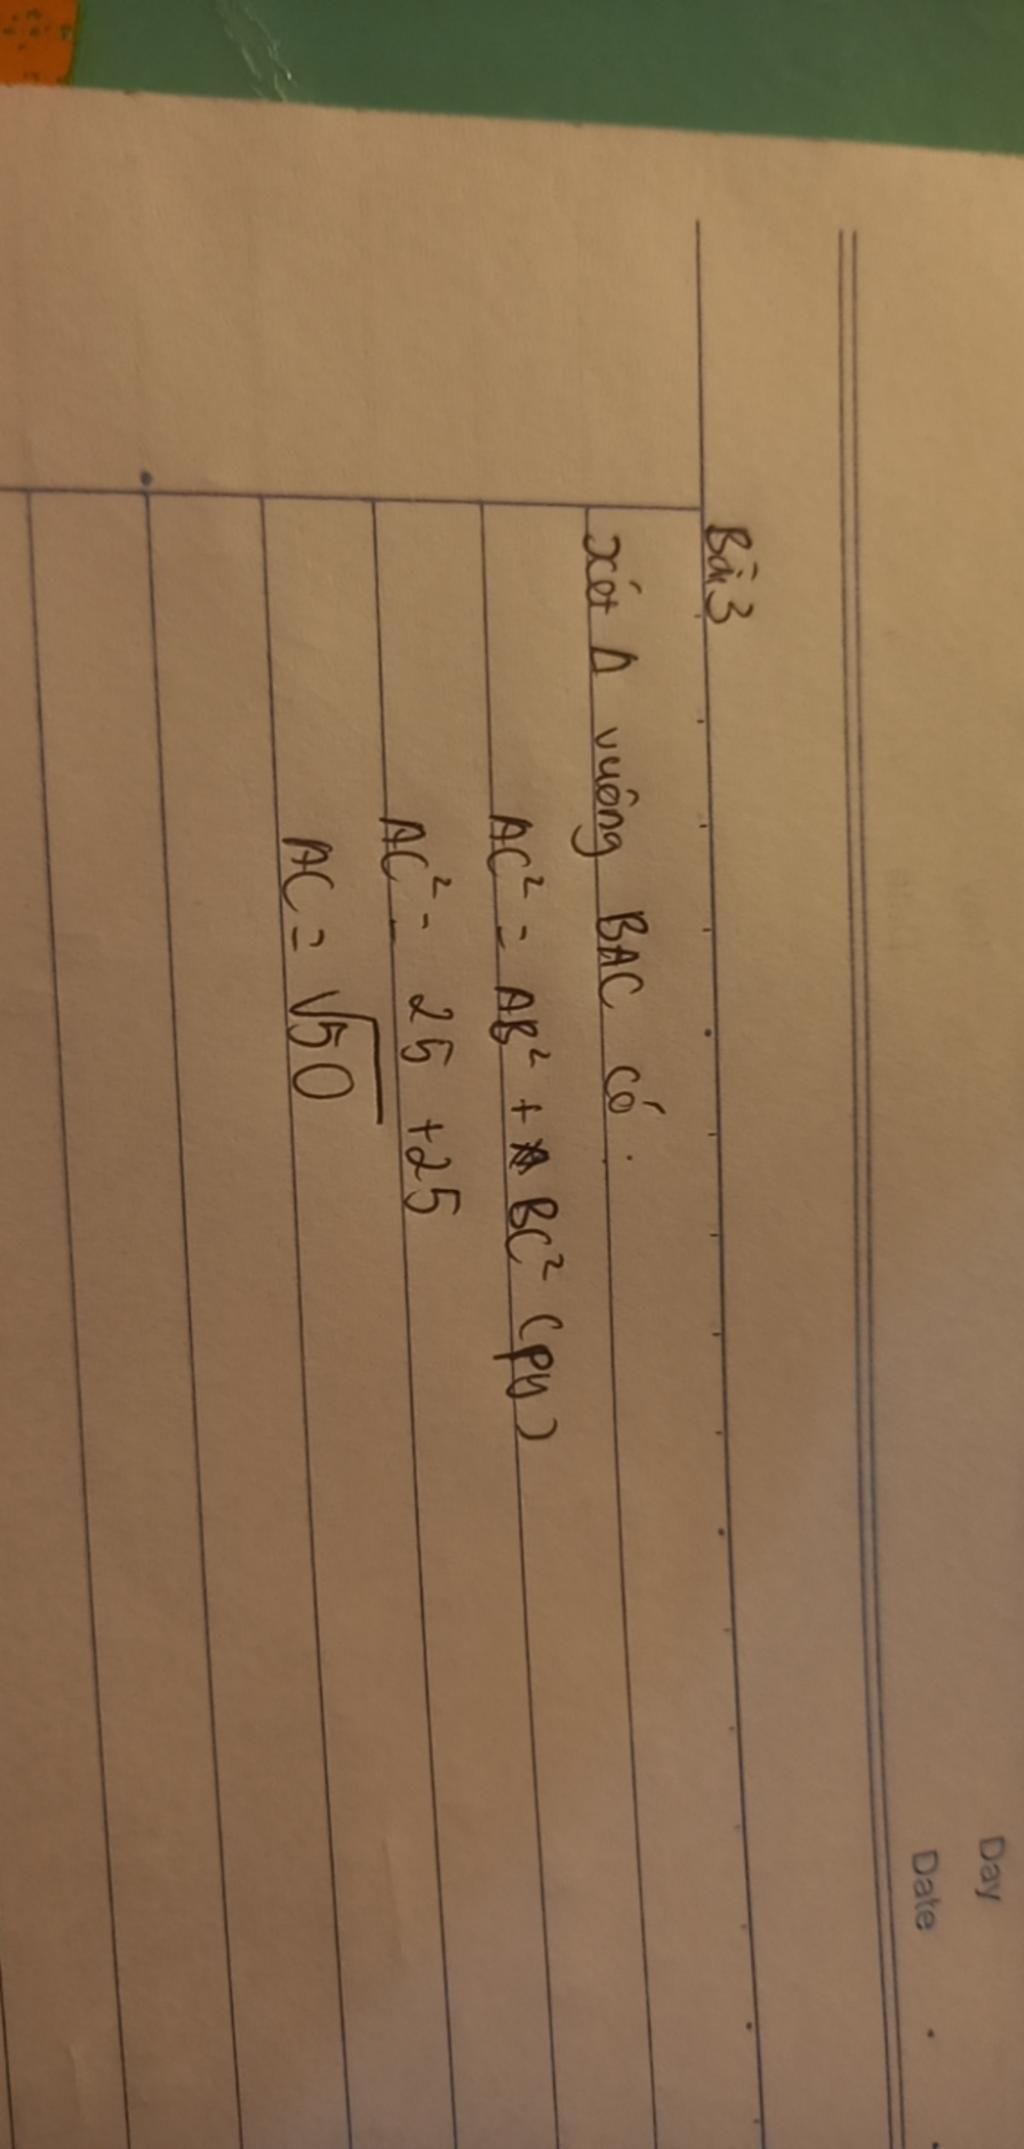 Day
Date
Bài 3
xét Δ vuông BAC có.
AC² = AB² + BC² (py)
AC² = 25 + 25
AC = √50